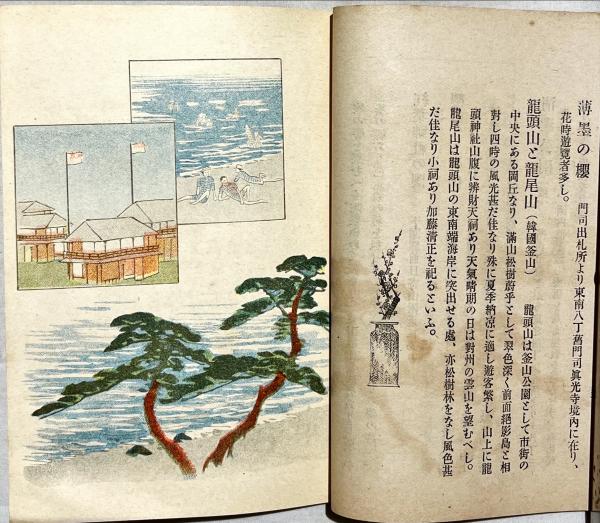 薄墨の櫻　門司出札所より東南八丁舊門司眞光寺境內に在り、
花時遊覽者多し。
龍頭山と龍尾山（韓國釜山）　龍頭山は釜山公園として市街の
中央にある岡丘なり、滿山松樹蔚乎として翠色深く前面絕影島と相
對し四時の風光甚だ佳なり殊に夏季納凉に適し遊客繁し、山上に龍
頭神社山腹に辨財天祠あり天氣晴朗の日は對州の雲山を望むべし。
龍尾山は龍頭山の東南端海岸に突出せる處、亦松樹林をなし風色甚
だ佳なり小祠あり加藤淸正を祀るといふ。